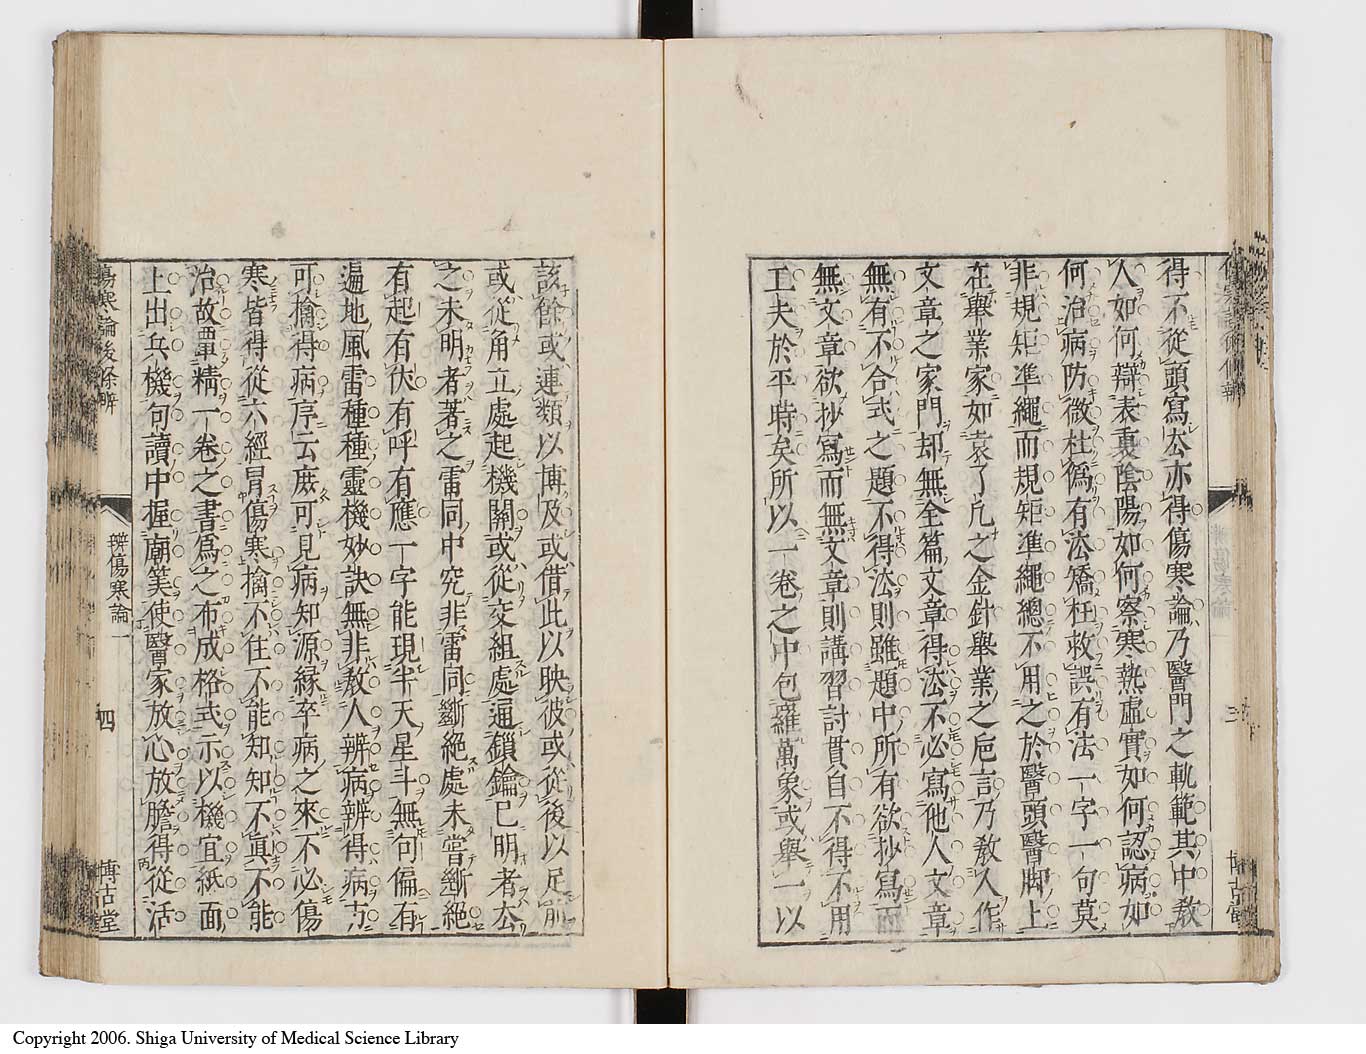 得不從頭寫㳒亦得傷寒論乃醫門之軌範其中敎
人如何辯表裏陰陽如何察寒熱虛實如何認病如
何治病防微杜僞有㳒矯枉救誤有法一字一句莫
非規矩準繩而規矩準繩總不用之於醫頭醫脚上
在舉業家如袁了凡之金針舉業之巵言乃敎人作
文章之家門却無全篇文章得㳒不必寫他人文章
無有不合式之題不得法則雖題中所有欲抄寫而
無文章欲抄寫而無文章則講習討貫自不得不用
工夫於平時矣所以一卷之中包羅萬象或舉一以
該餘或連類以博及或借此以映彼或從後以足前
或從角立處起機關或從交組處逼鎖鑰已明者㳒
之未明者著之雷同中究非雷同斷絕處未嘗斷絕
有起有伏有呼有應一字能現半天星斗無可偏有
遍地風雷種種靈機妙訣無非敎人辨病辨得病方
可擒得病序云庶可見病知源緣卒病之來不必傷
寒皆得從六經冒傷寒擒不住不能知知不眞不能
治故單精一卷之書爲之布成格式示以機宜紙面
上出兵機句讀中握廟筭使醫家放心放膽得從活
傷寒論後條辨
辨傷寒論一
四
博古堂
Copyright 2006. Shiga University of Medical Science Library